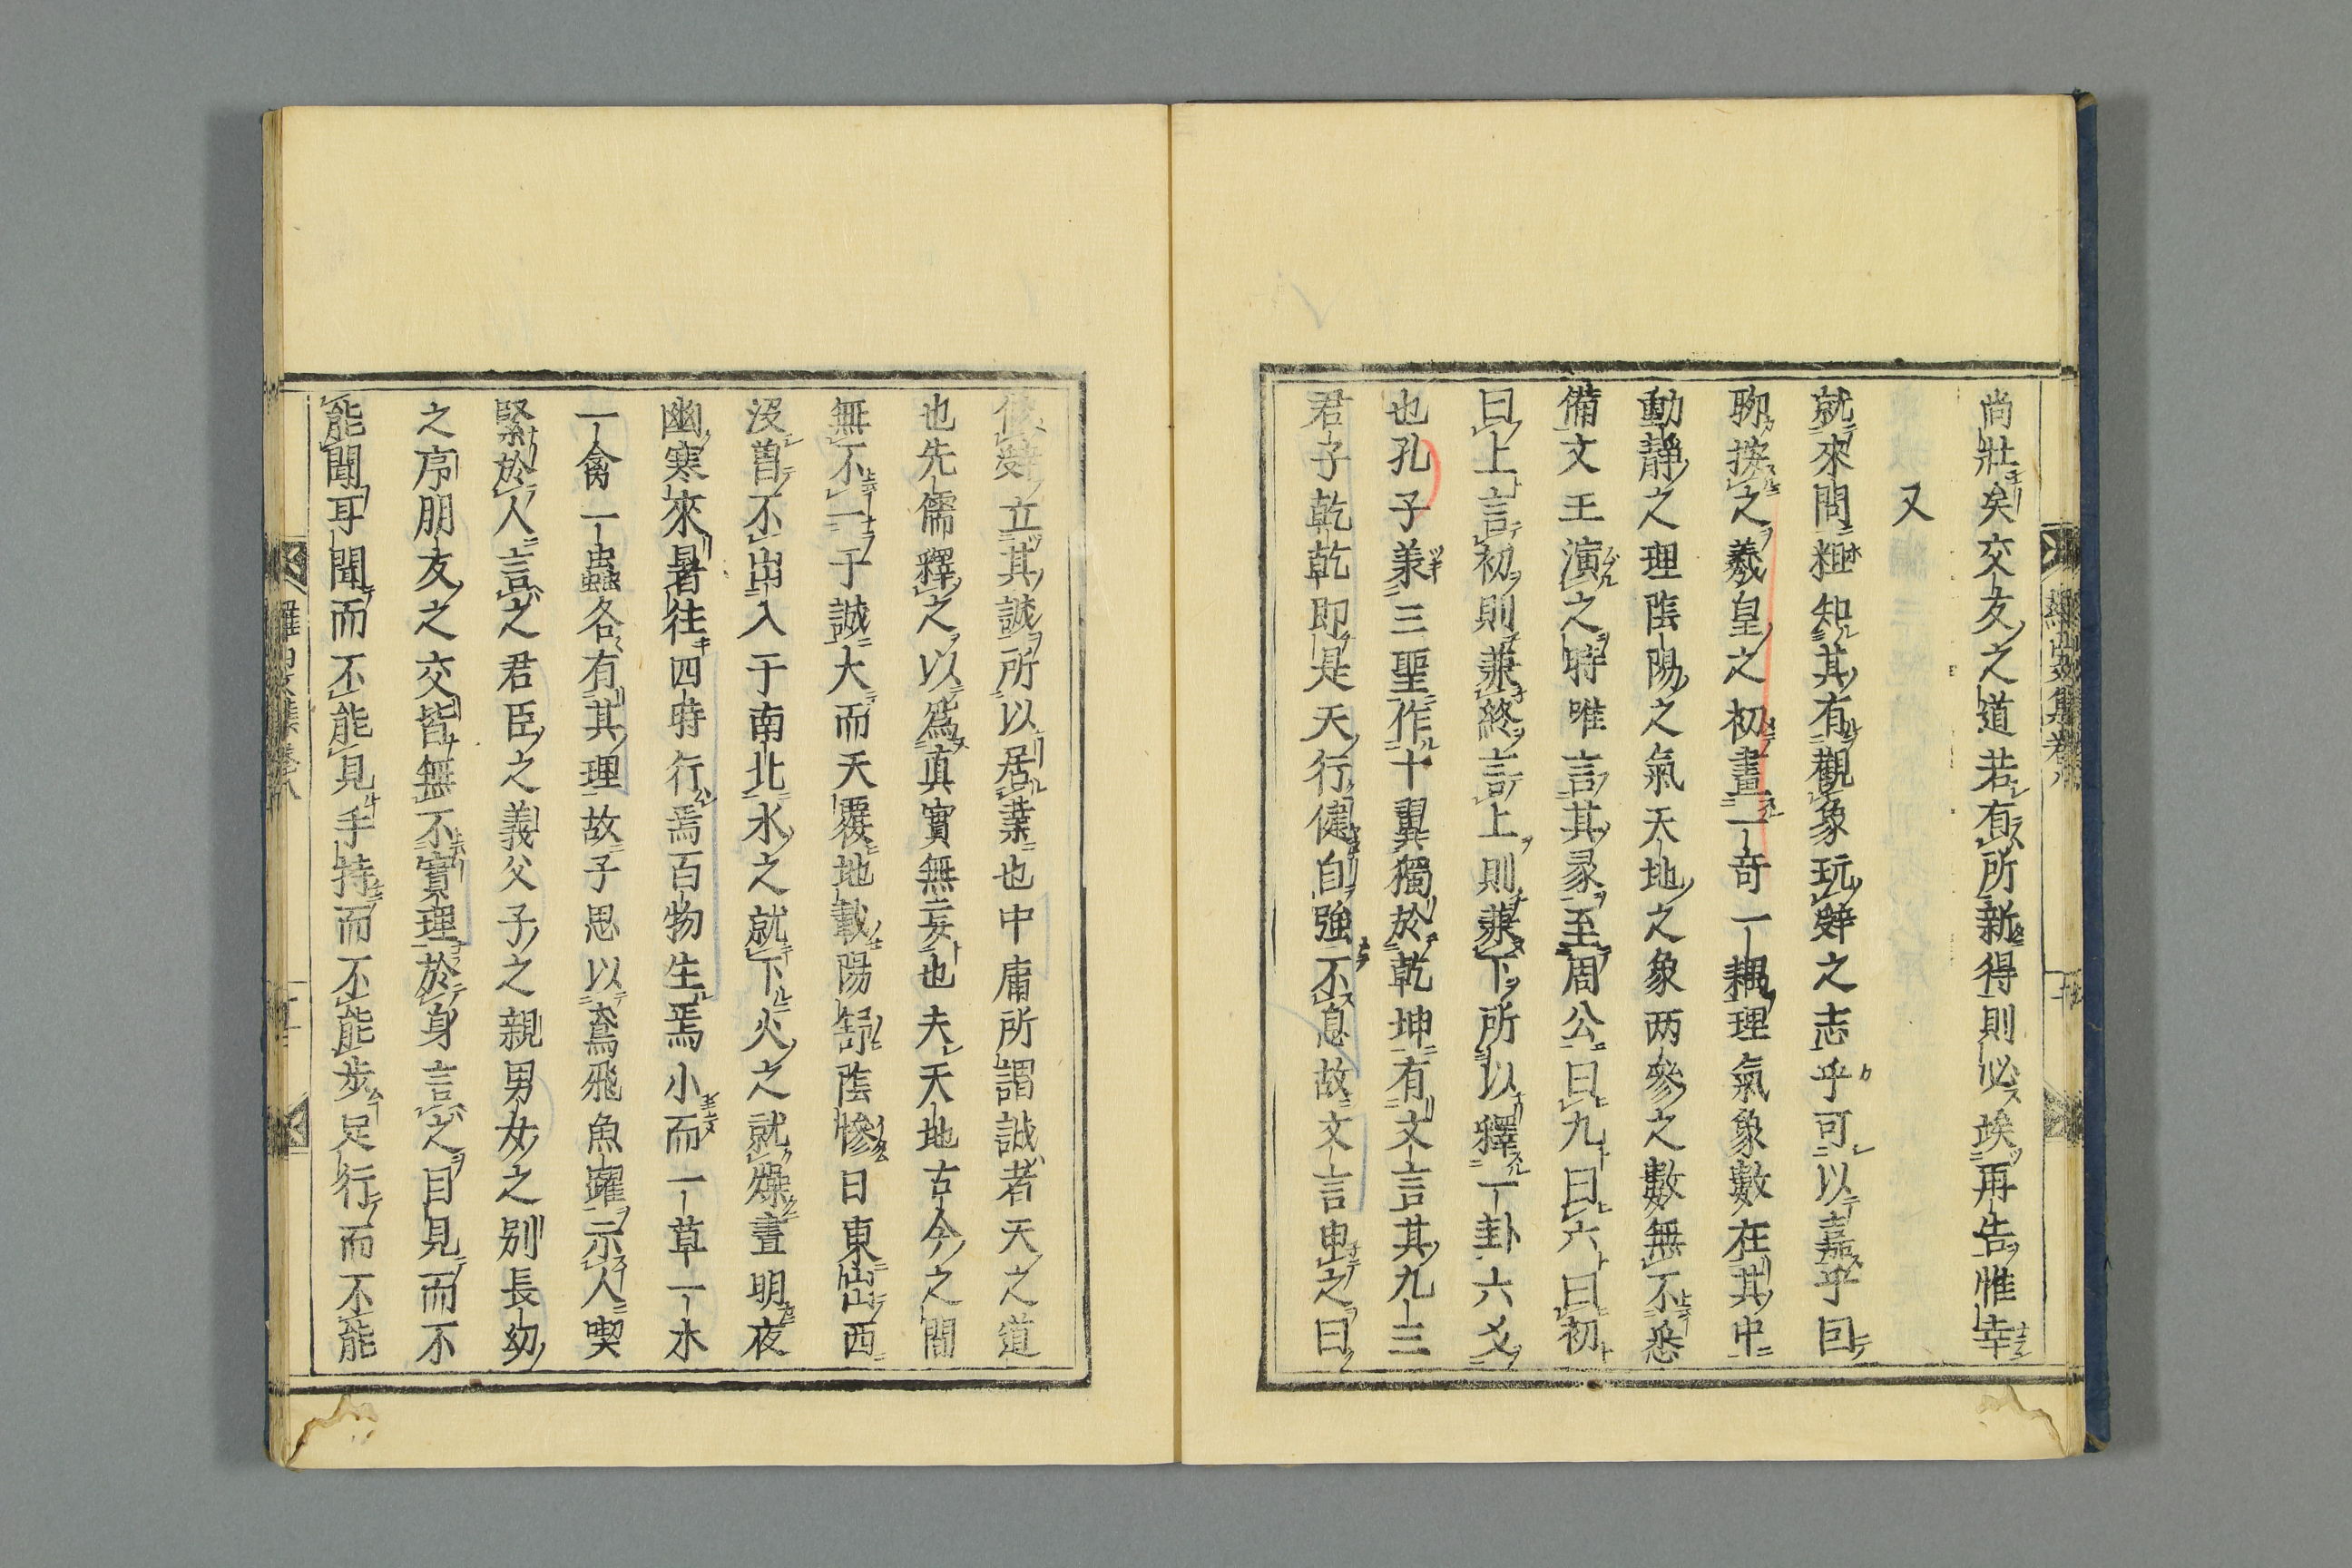 尚壯矣交友之道若有所新得則必埃再告惟幸
又
就來問粗知其有觀象玩辭之志乎可以嘉乎囘
聊按之羲皇之初畫一奇一耦理氣象數在其中
動靜之理陰陽之氣天地之象两參之數無不悉
備文王演之時唯言其彖至周公曰九曰六曰初
曰上言初則兼終言上則兼下所以釋一卦六爻
也孔子兼三聖作十翼獨於乾坤有文言其九三
君子乾乾即是天行健自強不息故文言申之曰
脩辭立其誠所以居業也中庸所謂誠者天之道
也先儒釋之以爲眞實無妄也夫天地古今之間
無不一于誠大而天覆地載陽舒陰慘日東出西
沒曾不出入于南北水之就下火之就燥晝明夜
幽寒來暑往四時行焉百物生焉小而一草一木
一禽一蟲各有其理故子思以鳶飛魚躍示人喫
緊於人言之君臣之義父子之親男女之別長幼
之序朋友之交皆無不實理於身言之目見而不
能聞耳聞而不能見手持而不能步足行而不能